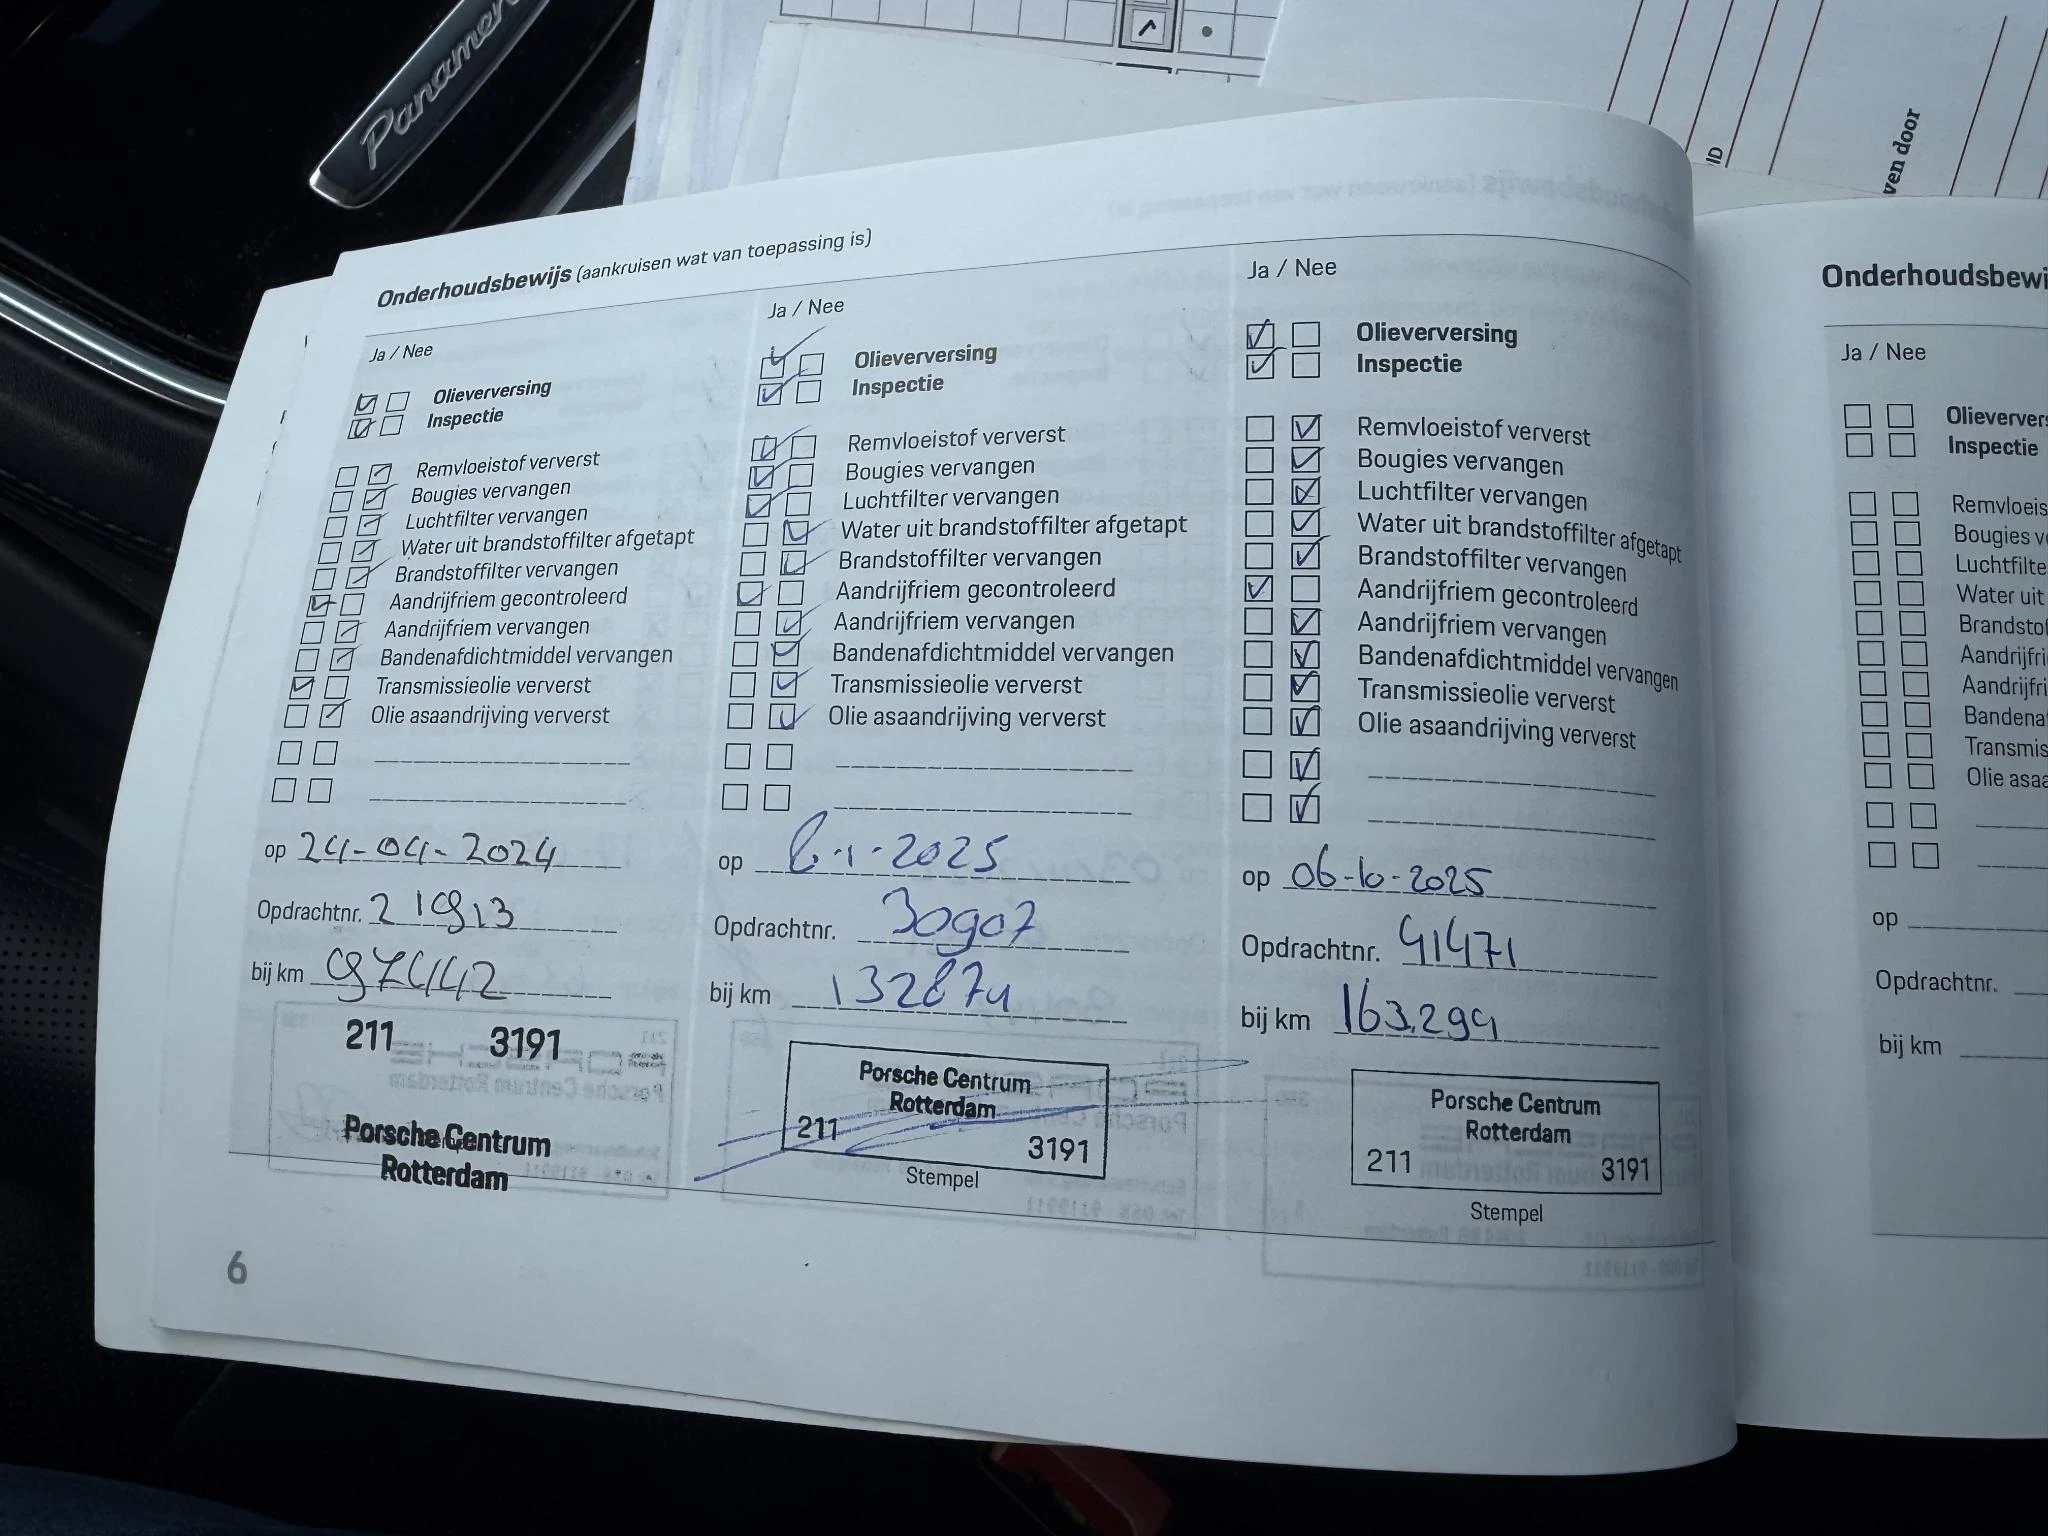 Panamer
ID
ven door
Onderhoudsbewijs (aankruisen wat van toepassing is)
Ja / Nee
Olieverversing
Inspectie
Remvloeistof ververst
Bougies vervangen
Luchtfilter vervangen
Water uit brandstoffilter afgetapt
Brandstoffilter vervangen
Aandrijfriem gecontroleerd
Aandrijfriem vervangen
Bandenafdichtmiddel vervangen
Transmissieolie ververst
Olie asaandrijving ververst
op 24-04-2024
Opdrachtnr. 21913
bij km 97442
211 3191
Porsche Centrum
Rotterdam
Ja / Nee
Olieverversing
Inspectie
Remvloeistof ververst
Bougies vervangen
Luchtfilter vervangen
Water uit brandstoffilter afgetapt
Brandstoffilter vervangen
Aandrijfriem gecontroleerd
Aandrijfriem vervangen
Bandenafdichtmiddel vervangen
Transmissieolie ververst
Olie asaandrijving ververst
op 6-1-2025
Opdrachtnr. 30907
bij km 132874
Porsche Centrum
Rotterdam
211 3191
Stempel
Ja / Nee
Olieverversing
Inspectie
Remvloeistof ververst
Bougies vervangen
Luchtfilter vervangen
Water uit brandstoffilter afgetapt
Brandstoffilter vervangen
Aandrijfriem gecontroleerd
Aandrijfriem vervangen
Bandenafdichtmiddel vervangen
Transmissieolie ververst
Olie asaandrijving ververst
op 06-10-2025
Opdrachtnr. 41471
bij km 163.299
Porsche Centrum
Rotterdam
211 3191
Stempel
6
Onderhoudsbewi
Ja / Nee
Olieverver
Inspectie
Remvloeis
Bougies v
Luchtfilte
Water uit
Brandsto
Aandrijfri
Aandrijfri
Bandena
Transmis
Olie asaa
op
Opdrachtnr.
bij km